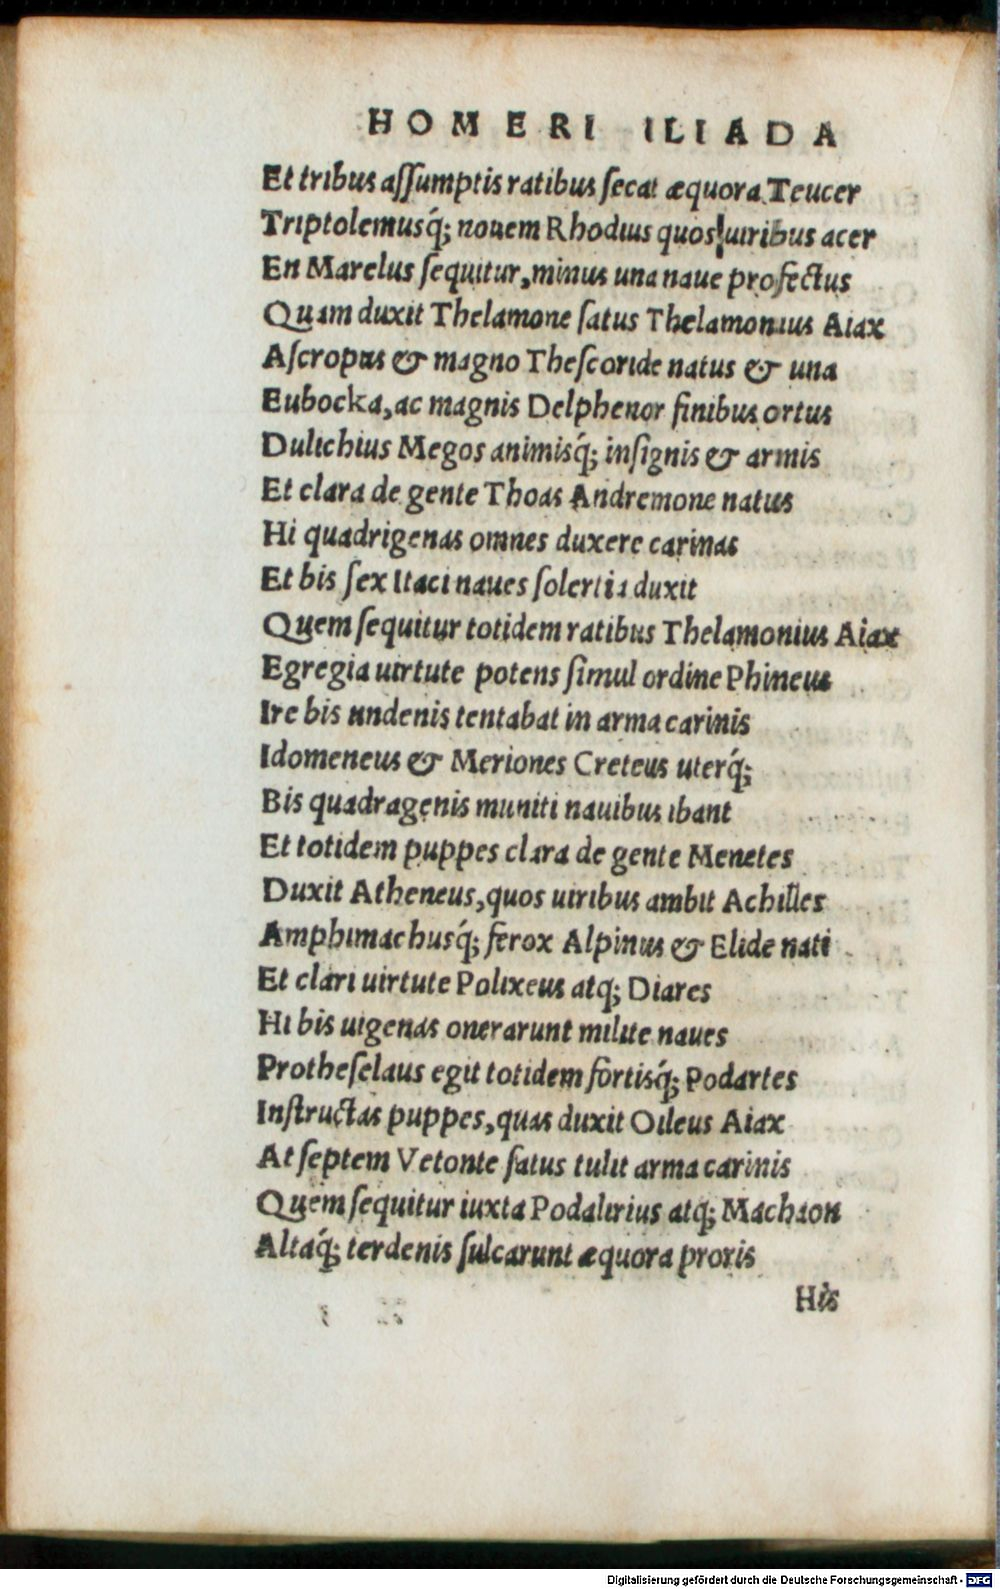 HOMERI ILIADA
Et tribus aſſumptis ratibus ſecat æquora Teucer
Triptolemusq́; nouem Rhodius quos uiribus acer
En Marelus ſequitur, minus una naue profectus
Quam duxit Thelamone ſatus Thelamonius Aiax
Aſcropus & magno Theſcoride natus & una
Eubocka, ac magnis Delphenor finibus ortus
Dulichius Megos animisq́; inſignis & armis
Et clara de gente Thoas Andremone natus
Hi quadrigenas omnes duxere carinas
Et bis ſex Itaci naues ſolertia duxit
Quem ſequitur totidem ratibus Thelamonius Aiax
Egregia uirtute potens ſimul ordine Phineus
Ire bis undenis tentabat in arma carinis
Idomeneus & Meriones Creteus uterq́;
Bis quadragenis muniti nauibus ibant
Et totidem puppes clara de gente Menetes
Duxit Atheneus, quos uiribus ambit Achilles
Amphimachusq́; ferox Alpinus & Elide nati
Et clari uirtute Polixeus atq; Diares
Hi bis uigenas onerarunt milite naues
Protheſelaus egit totidem fortisq́; Podartes
Inſtructas puppes, quas duxit Oileus Aiax
At ſeptem Vetonte ſatus tulit arma carinis
Quem ſequitur iuxta Podalirius atq; Machaon
Altaq́; terdenis ſulcarunt æquora proris
His
Digitalisierung gefördert durch die Deutsche Forschungsgemeinschaft - DFG